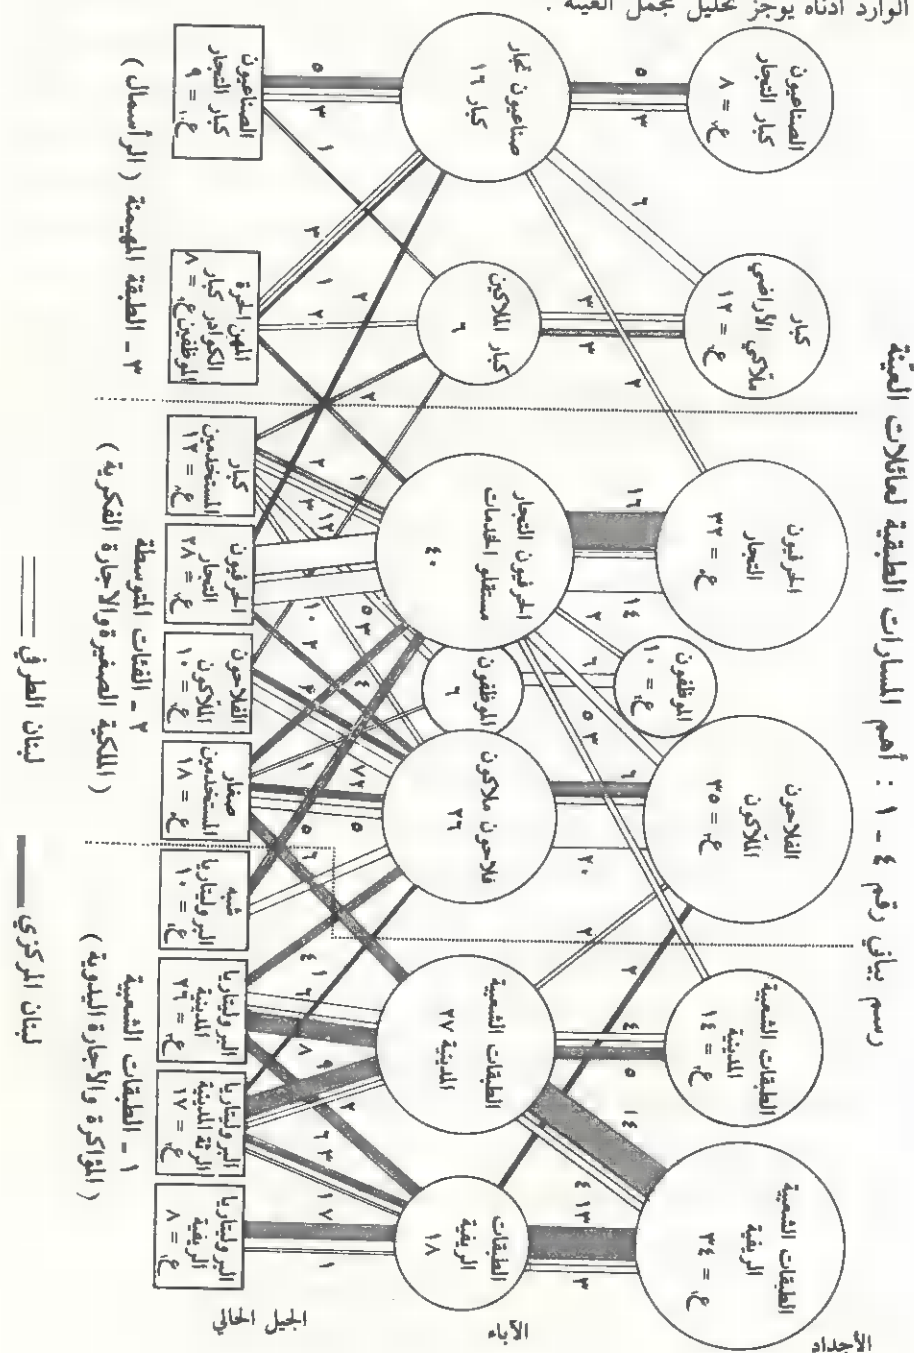 الوارد أدناه يوجز تحليل مجمل العينة .
رسم بياني رقم ٤ - ١ : أهم المسارات الطبقية لعائلات العيّنة
الأجداد
الصناعيون
كبار التجار
ع = ٨
كبار
ملاّكي الأراضي
ع = ١٢
الحرفيون
التجار
ع = ٣٢
الموظفون
ع = ١٠
الفلاحون
الملاّكون
ع = ٣٥
الطبقات الشعبية
المدينية
ع = ١٤
الطبقات الشعبية
الريفية
ع = ٣٤
٥
٣
٦
٢
٣
٣
١٦
١٤
٢
٦
٥
٣
٦
٢٠
٢
٢
٤
٥
١٤
٤
١٣
٣
الآباء
صناعيون تجار
كبار ١٦
كبار الملاكين
٦
الحرفيون التجار
مستقلو الخدمات
٤٠
الموظفون
٦
فلاحون ملاكون
٢٦
الطبقات الشعبية
المدينية ٢٧
الطبقات
الريفية
١٨
٥
٣
١
٣
١
٢
٢
٢
١
٢
٣
١٢
١٠
٣
٥
٣
٤
٢
١
٧
٥
٥
٦
١
٤
٦
٨
٩
٢
٦
٣
١٧
١
الجيل الحالي
الصناعيون
كبار التجار
ع = ٩
المهن الحرة
الكوادر كبار
الموظفين ع = ٨
كبار
المستخدمين
ع = ١٢
الحرفيون
التجار
ع = ٢٨
الفلاحون
الملاكون
ع = ١٠
صغار
المستخدمين
ع = ١٨
شبه
البروليتاريا
ع = ١٠
البروليتاريا
المدينية
ع = ٢٦
البروليتاريا
الرثة المدينية
ع = ١٧
البروليتاريا
الريفية
ع = ٨
٣ - الطبقة المهيمنة ( الرأسمال )
٢ - الفئات المتوسطة
( الملكية الصغيرة والاجارة الفكرية )
١ - الطبقات الشعبية
( المؤاكرة والأجارة اليدوية )
لبنان الطرفي
لبنان المركزي